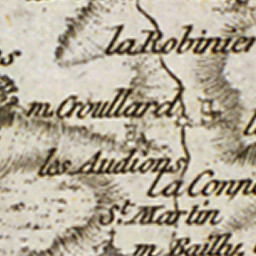 la Robinier
m. Croullard
les Audions
la Conn
St. Martin
m Bailly.